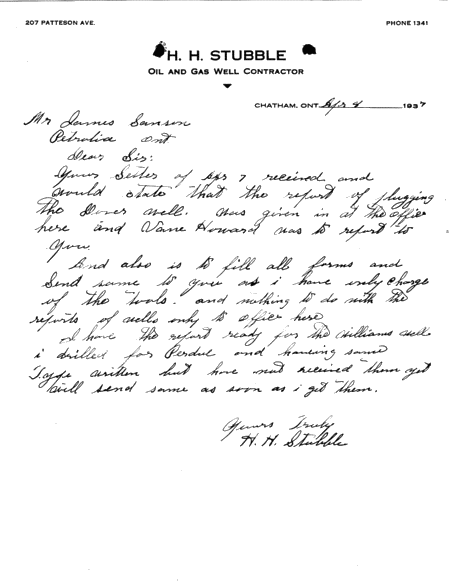 207 PATTESON AVE.
PHONE 1341
H. H. STUBBLE
OIL AND GAS WELL CONTRACTOR
CHATHAM, ONT. Apr 8 1937
Mr James Samson
Petrolia Ont
Dear Sir:
Yours Letter of Apr 7 received and
would state that the report of plugging
the Dover well. was given in at the office
here and Vane Howard was to report to
you.
And also is to fill all forms and
Send same to you as i have only charge
of the tools. and nothing to do with the
reports of wells only to office here
I have the report ready for the Williams well
i drilled for Perdue and having same
written but have not received them yet
will send same as soon as i get them.
Yours Truly
H. H. Stubble